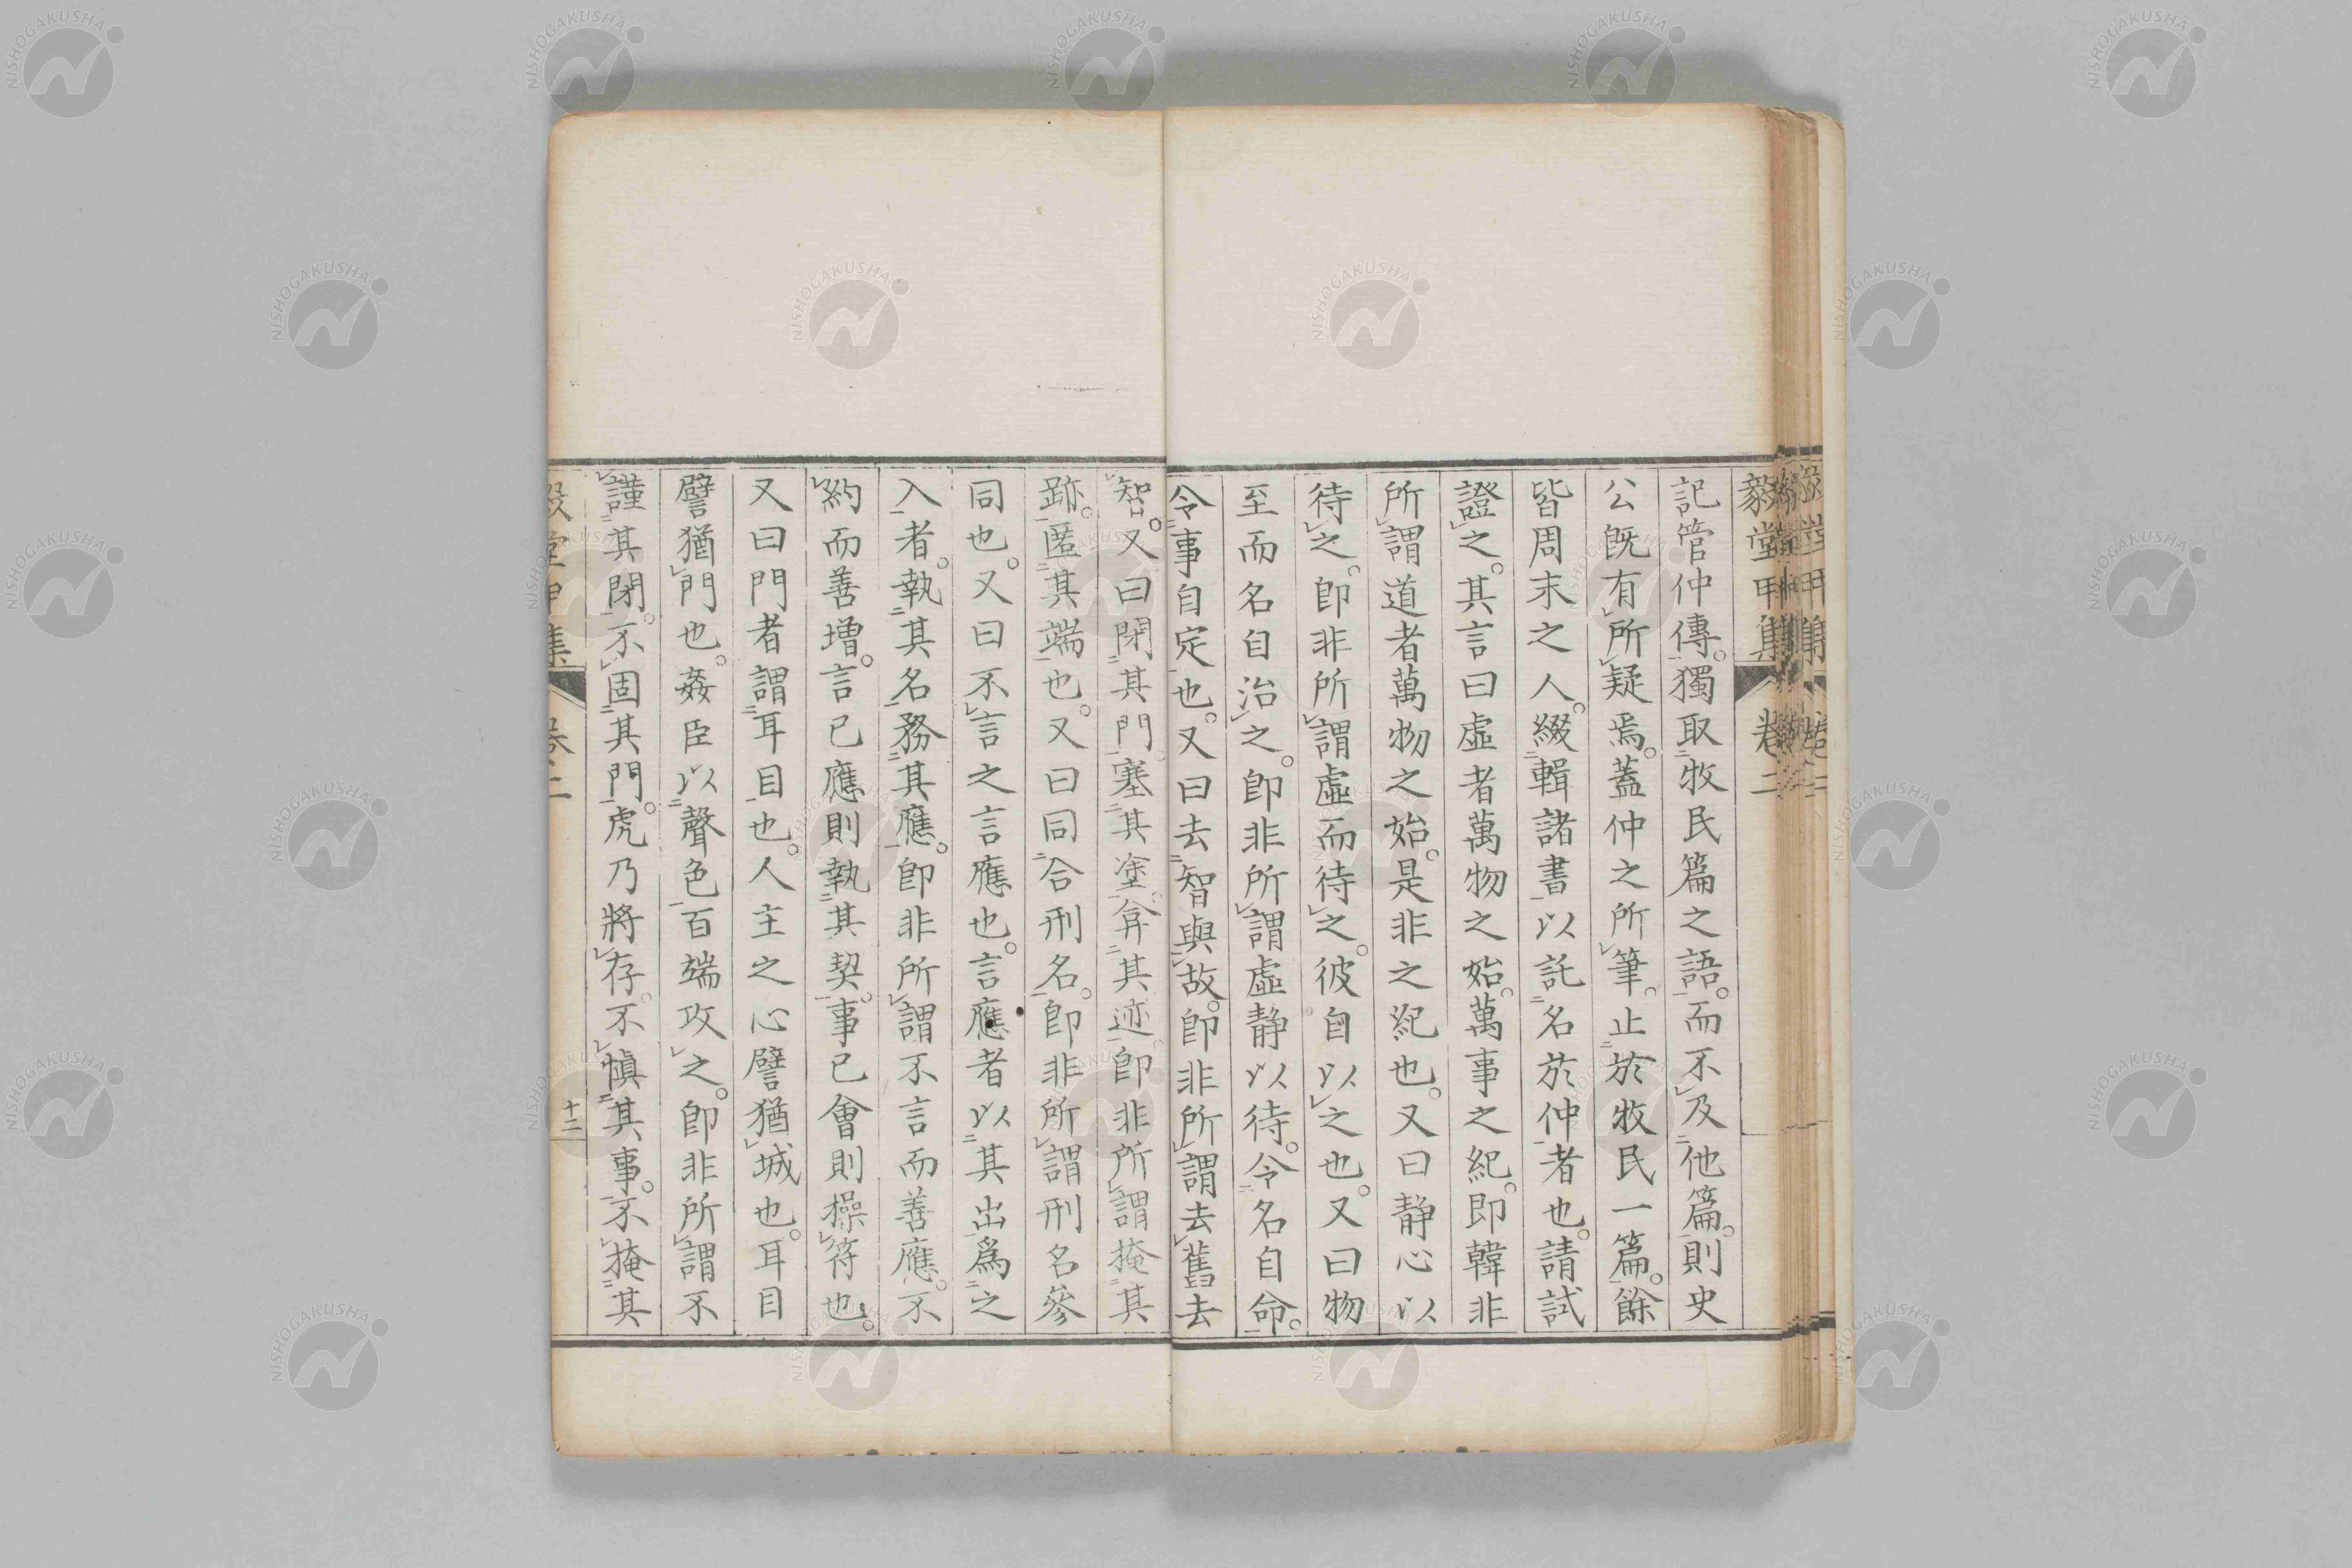 毅堂甲集 卷二
記管仲傳。獨取牧民篇之語。而不及他篇。則史
公既有所疑焉。蓋仲之所筆。止於牧民一篇。餘
皆周末之人。綴輯諸書以託名於仲者也。請試
證之。其言曰虛者萬物之始。萬事之紀。即韓非
所謂道者萬物之始。是非之紀也。又曰静心以
待之。即非所謂虛而待之。彼自以之也。又曰物
至而名自治之。即非所謂虛静以待。令名自命。
令事自定也。又曰去智與故。即非所謂去舊去
智。又曰閉其門。塞其塗。弇其迹。即非所謂掩其
跡。匿其端也。又曰同合刑名。即非所謂刑名參
同也。又曰不言之言應也。言應者以其出爲之
入者。執其名務其應。即非所謂不言而善應。不
約而善增。言已應則執其契。事已會則操符也。
又曰門者謂耳目也。人主之心譬猶城也。耳目
譬猶門也。姦臣以聲色百端攻之。即非所謂不
謹其閉。不固其門。虎乃將存。不慎其事。不掩其
毅堂甲集 卷二 十二
NISHOGAKUSHA